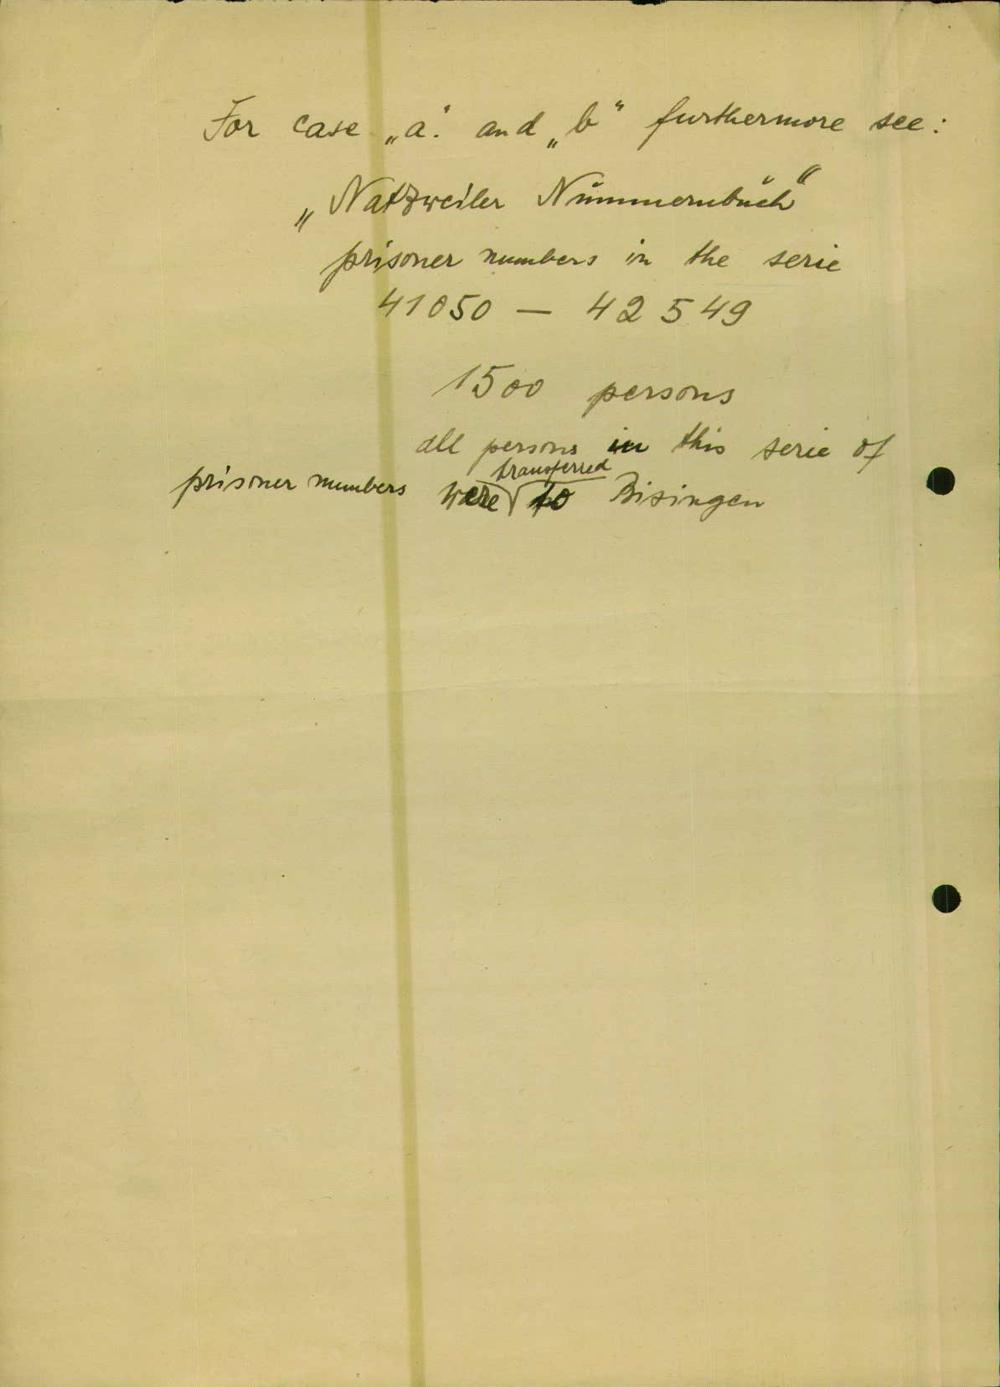 For case „a“ and „b“ furthermore see:
„Natzweiler Nummernbuch“
prisoner numbers in the serie
41050 — 42549
1500 persons
all persons in this serie of
prisoner numbers were transferred to Bisingen